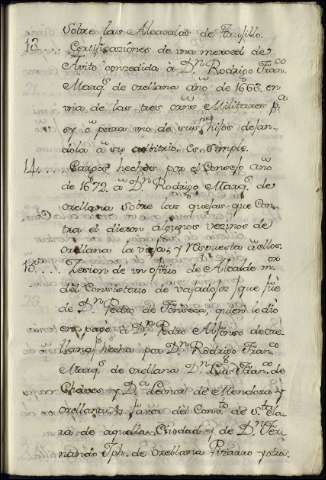 Sobre las Alcavalas de Truxillo.
13... Certificaziones de una merced de
Avito conzedida à Dn. Rodrigo Fran.co
Marq.s de orellana año de 1666 en
una de las tres orns. Militares p.a
si o para uno de sus hijos dejan
dola à su arbitrio. Es simple.
14... Cargos hechos por el Consejo año
de 1672 a Dn. Rodrigo Marq.s de
orellana sobre las quejas que Con
tra el dieron algunos vezinos de
orellana la vieja, y Respuesta à ellos
15... Zesion de un ofizio de Alcalde m.or
del Consistorio de que fue
de Dn. Pedro de Fonseca, quien le dio
en pago à Dn. Pedro Alfonso de ore
llana; hecha por Dn. Rodrigo Fran.co
Marq.s de orellana Dn. Fran.co de
Chaves y D.a Leonor de Mendoza y
orellana à favor del Conv.to de S.ta Cla
ra de aquella Ciudad y de Dn. Fer
nando Jph. de orellana Pizarro y otra